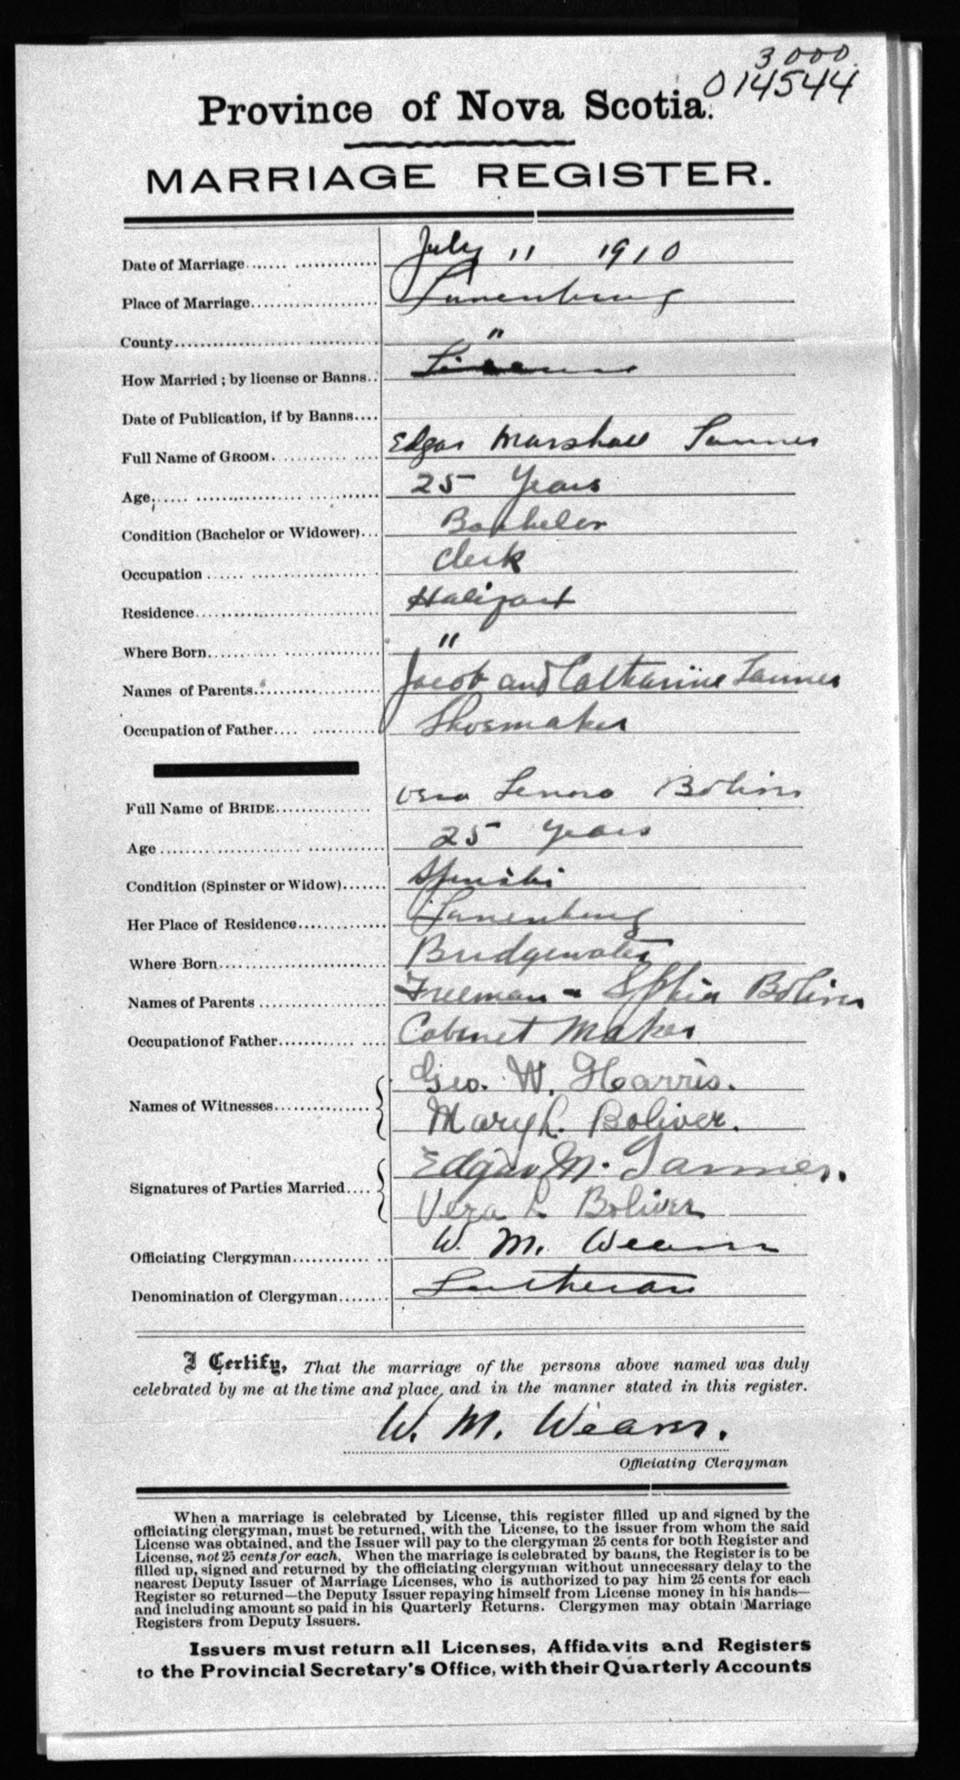 3000.
014544
Province of Nova Scotia.
MARRIAGE REGISTER.
Date of Marriage July 11 1910
Place of Marriage Lunenburg
County "
How Married ; by license or Banns License
Date of Publication, if by Banns
Full Name of GROOM Edgar Marshall Tanner
Age 25 Years
Condition (Bachelor or Widower) Bachelor
Occupation Clerk
Residence Halifax
Where Born "
Names of Parents Jacob and Catharine Tanner
Occupation of Father Shoemaker
Full Name of BRIDE Vera Lenora Boliver
Age 25 years
Condition (Spinster or Widow) Spinster
Her Place of Residence Lunenburg
Where Born Bridgewater
Names of Parents Freeman - Sophia Boliver
Occupation of Father Cabinet Maker
Names of Witnesses Geo. W. Harris.
Mary L. Boliver.
Signatures of Parties Married Edgar M. Tanner.
Vera L. Boliver
Officiating Clergyman W. M. Weaver
Denomination of Clergyman Lutheran
I Certify, That the marriage of the persons above named was duly
celebrated by me at the time and place, and in the manner stated in this register.
W. M. Weaver.
Officiating Clergyman
When a marriage is celebrated by License, this register filled up and signed by the
officiating clergyman, must be returned, with the License, to the issuer from whom the said
License was obtained, and the Issuer will pay to the clergyman 25 cents for both Register and
License, not 25 cents for each. When the marriage is celebrated by banns, the Register is to be
filled up, signed and returned by the officiating clergyman without unnecessary delay to the
nearest Deputy Issuer of Marriage Licenses, who is authorized to pay him 25 cents for each
Register so returned—the Deputy Issuer repaying himself from License money in his hands—
and including amount so paid in his Quarterly Returns. Clergymen may obtain Marriage
Registers from Deputy Issuers.
Issuers must return all Licenses, Affidavits and Registers
to the Provincial Secretary's Office, with their Quarterly Accounts